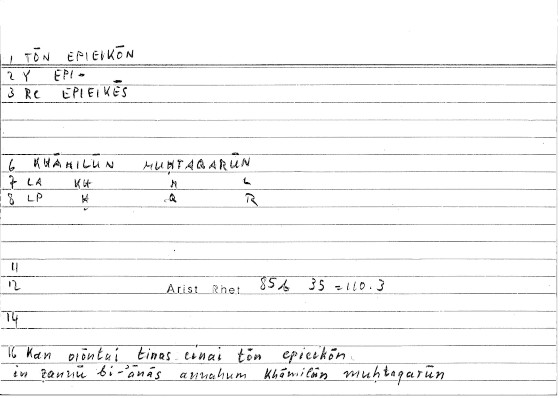 1 TŌN EPIEIKŌN
2 Y EPI-
3 RC EPIEIKĒS
6 KHĀMILŪN MUḤTAQARŪN
7 LA KH M L
8 LP Ḥ Q R
11
12 Arist Rhet 85b 35 = 110.3
14
16 Kan oiōntai tinas einai tōn epieikōn
in ẓannū bi-'ānās annahum khāmilūn muḥtaqarūn